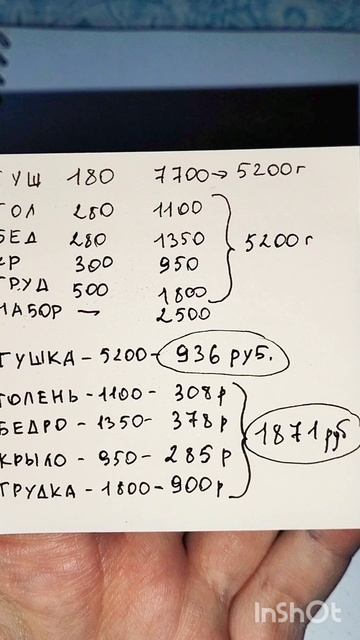 ТУШ 180 7700→5200г
ГОЛ 280 1100
БЕД 280 1350
КР 300 950
ГРУД 500 1800
НАБОР — 2500
5200г
ТУШКА - 5200 - 936 руб.
ГОЛЕНЬ - 1100 - 308р
БЕДРО - 1350 - 378р
КРЫЛО - 950 - 285р
ГРУДКА - 1800 - 900р
1871 руб
InShOt